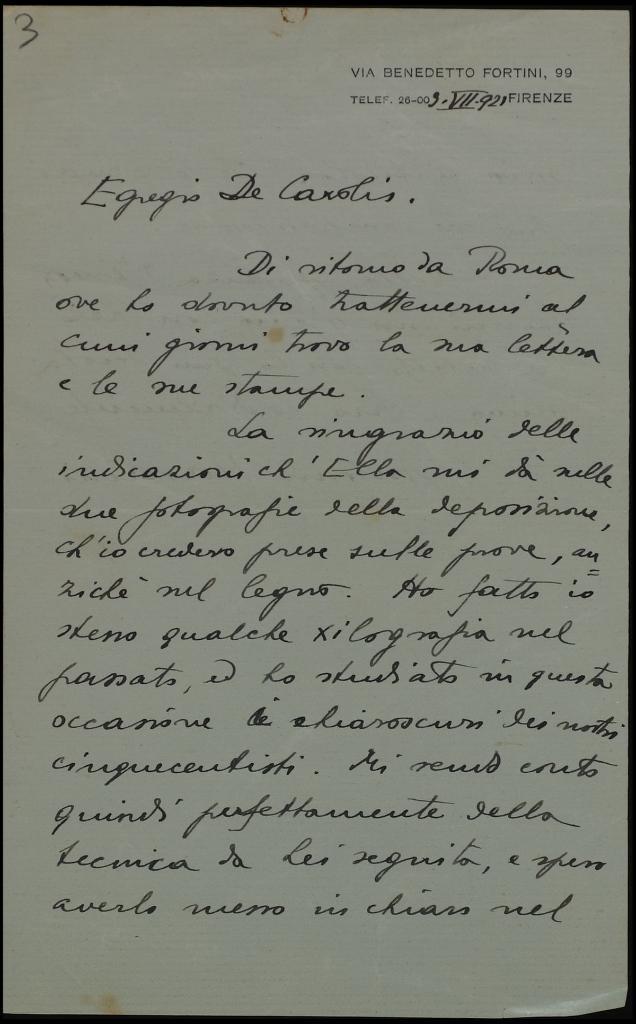 3
VIA BENEDETTO FORTINI, 99
TELEF. 26-00 9.VII.921 FIRENZE
Egregio De Carolis.
Di ritorno da Roma
ove ho dovuto trattenermi al
cuni giorni trovo la sua lettera
e le sue stampe.
La ringrazio delle
indicazioni ch'Ella mi dà nelle
due fotografie della deposizione,
ch'io credevo prese sulle prove, an=
zichè nel legno. Ho fatto io
stesso qualche xilografia nel
passato, ed ho studiato in questa
occasione i chiaroscuri dei nostri
cinquecentisti. Mi rendo conto
quindi perfettamente della
tecnica da Lei seguita, e spero
averlo messo in chiaro nel